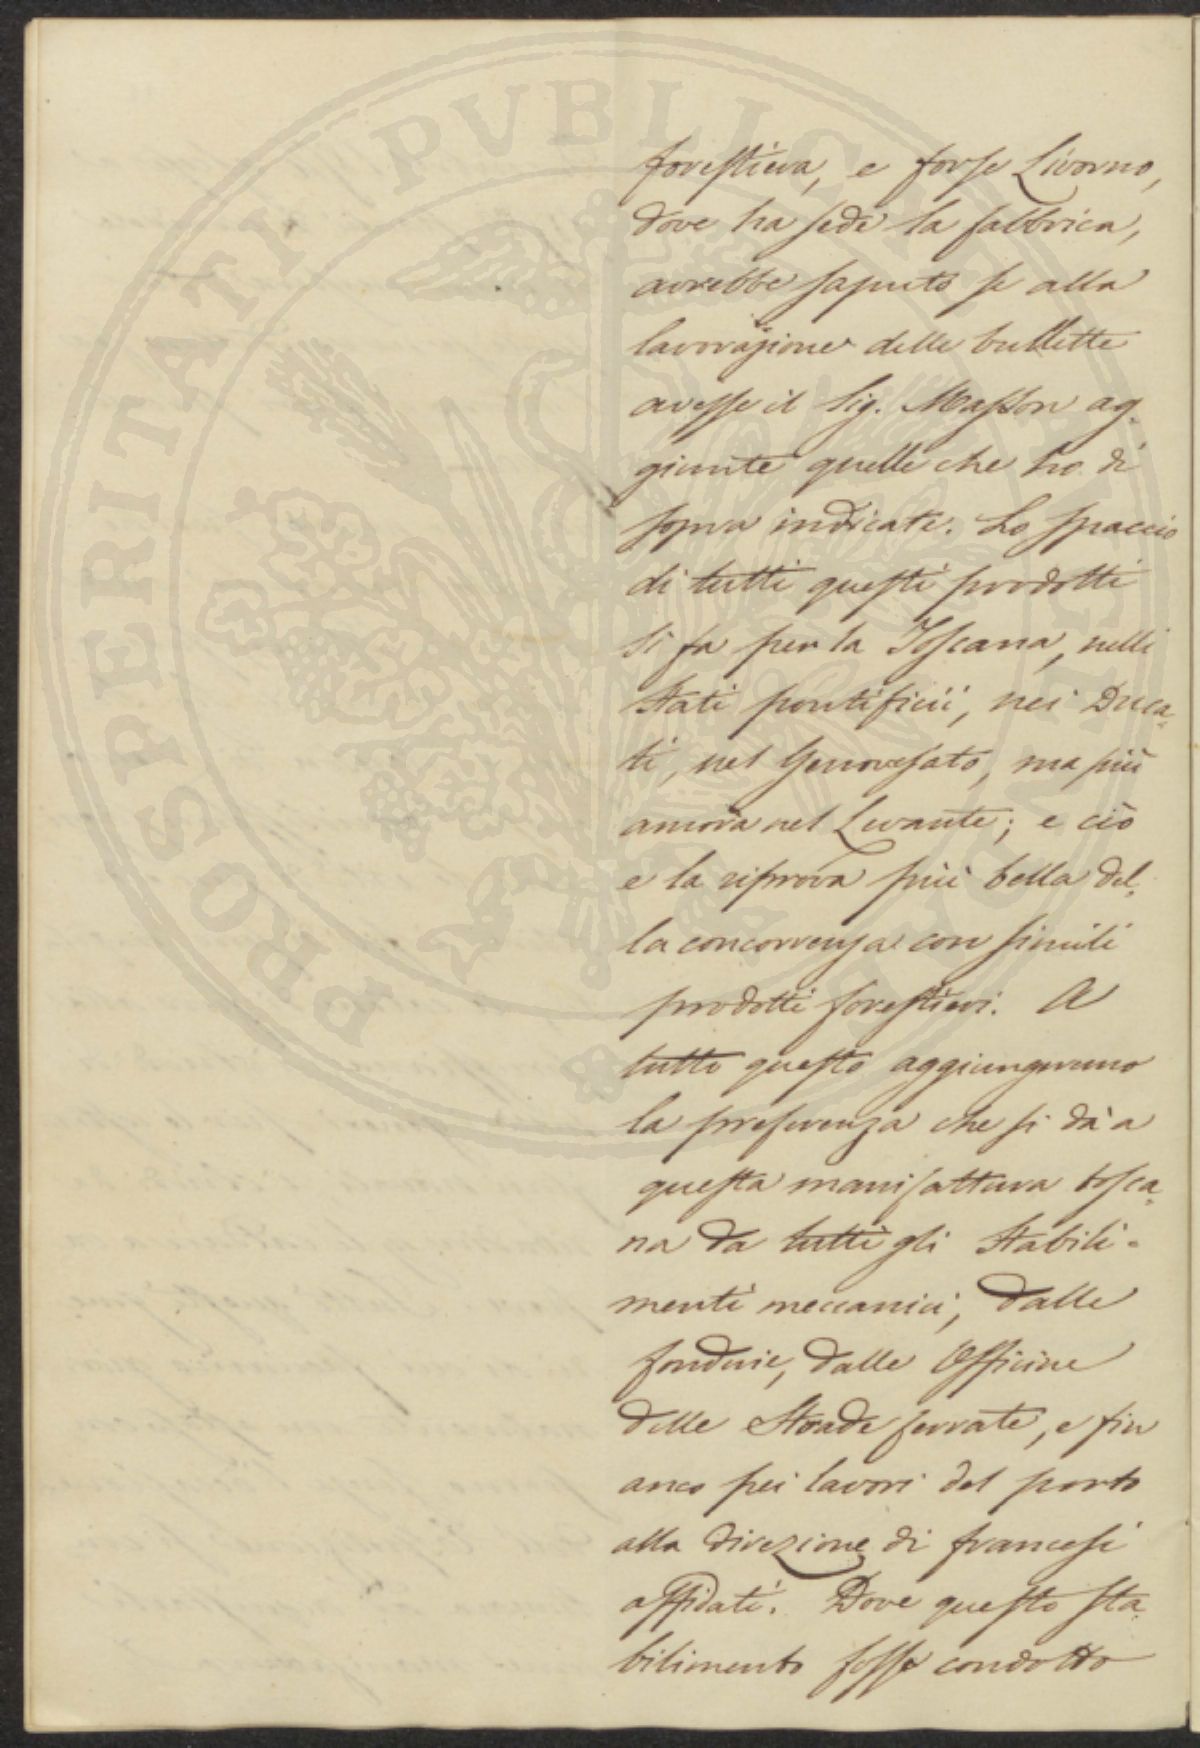 forestiera, e forse Livorno,
dove ha sede la fabbrica,
avrebbe saputo se alla
lavorazione delle bullette
avesse il Sig. Masson ag-
giunte quelle che ho di
sopra indicate. Lo spaccio
di tutti questi prodotti
si fa per la Toscana, nelli
Stati pontificii, nei Duca-
ti, nel Genovesato, ma più
ancora nel Levante; e ciò
e la riprova più bella del-
la concorrenza con simili
prodotti forestieri. A
tutto questo aggiungeremo
la preferenza che si dà a
questa manifattura tosca-
na da tutti gli Stabili-
menti meccanici, dalle
fonderie, dalle Officine
delle Strade ferrate, e fin
anco pei lavori del porto
alla direzione di francesi
affidati. Dove questo sta
bilimento fosse condotto
PROSPERITATI PVBLICAE